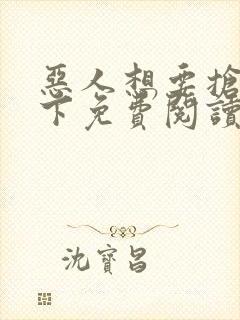 惡人想要搶
下免費閱讀
沈寶昌